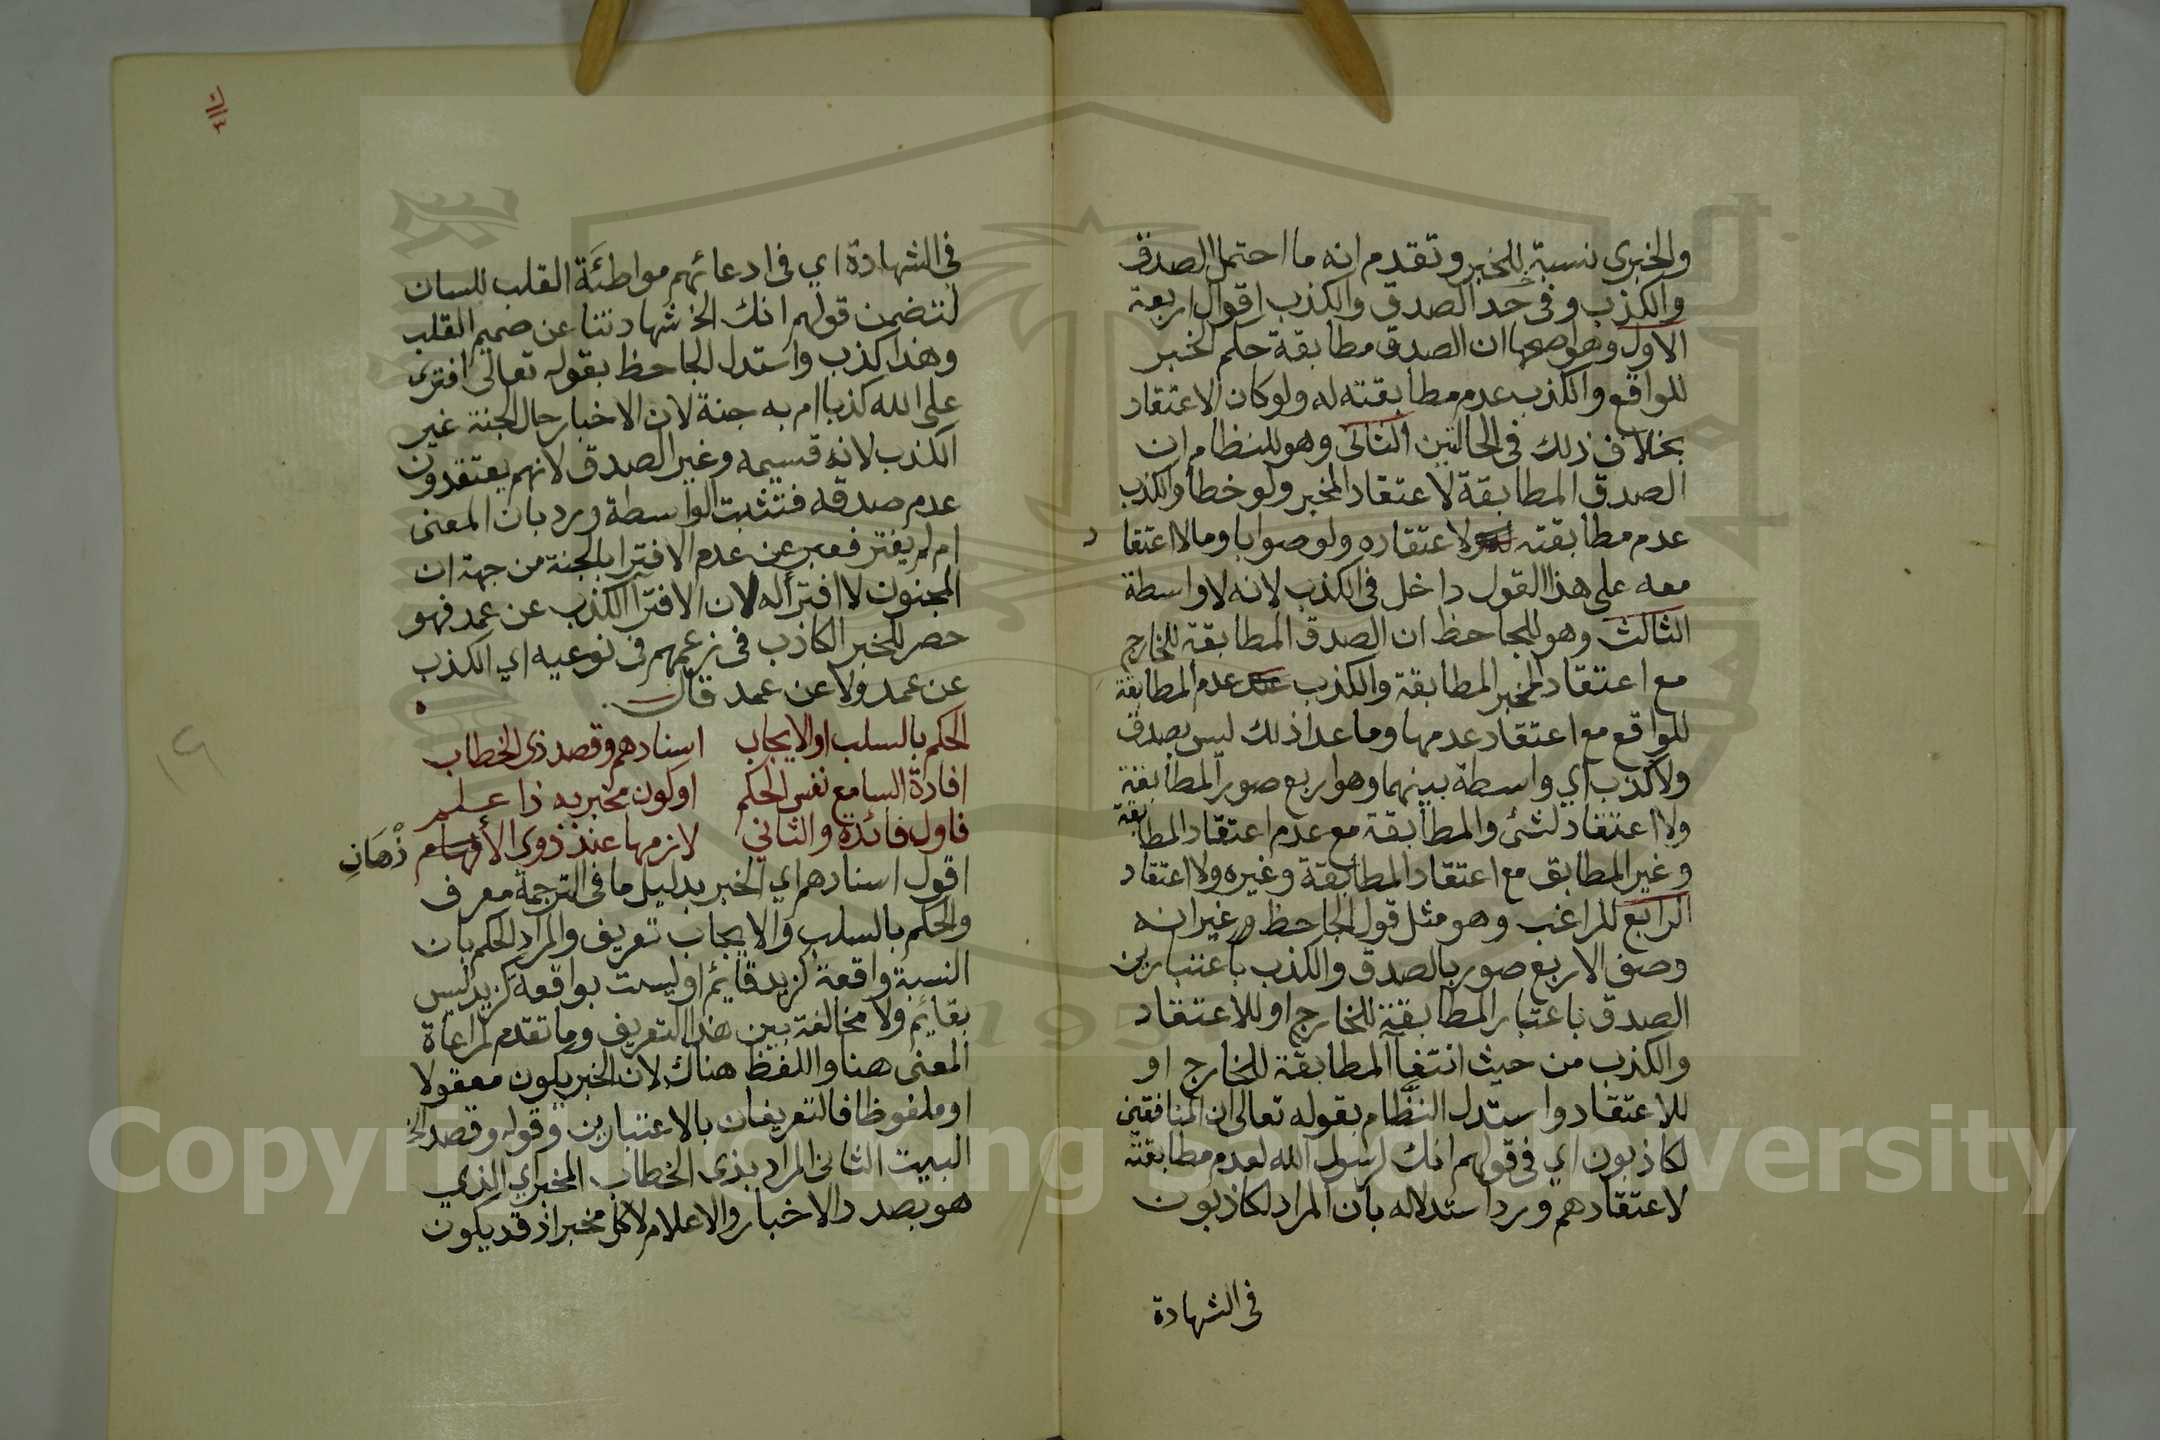 والخبرى نسبة للخبر وتقدم انه ما احتمل الصدق
والكذب وفى حد الصدق والكذب اقوال اربعة
الاول وهو اصحها ان الصدق مطابقة حكم الخبر
للواقع والكذب عدم مطابقته له ولو كان الاعتقاد
بخلاف ذلك فى الحالتين الثانى وهو للنظام ان
الصدق المطابقة لاعتقاد المخبر ولو خطأ والكذب
عدم مطابقته لاعتقاده ولو صوابا وما لا اعتقا د
معه على هذا القول داخل فى الكذب لانه لا واسطة
الثالث وهو للجاحظ ان الصدق المطابقة للخارج
مع اعتقاد المخبر المطابقة والكذب عدم المطابقة
للواقع مع اعتقاد عدمها وما عدا ذلك ليس بصدق
ولا كذب اي واسطة بينهما وهو اربع صور المطابقة
ولا اعتقاد لشئ والمطابقة مع عدم اعتقاد المطابقة
وغير المطابق مع اعتقاد المطابقة وغيره ولا اعتقاد
الرابع للراغب وهو مثل قول الجاحظ غير انه
وصف الاربع صور بالصدق والكذب باعتبارين
الصدق باعتبار المطابقة للخارج او للاعتقاد
والكذب من حيث انتفآ المطابقة للخارج او
للاعتقاد واستدل النظام بقوله تعالى ان المنافقين
لكاذبون اي فى قولهم انك لرسول الله لعدم مطابقته
لاعتقادهم ورد استدلاله بان المراد لكاذبون
فى الشهادة
فى الشهادة اي فى ادعائهم مواطئة القلب للسان
لتضمن قولهم انك الخ شهادتنا عن صميم القلب
وهذا كذب واستدل الجاحظ بقوله تعالى افترى
على الله كذبا ام به جنة لان الاخبار حال الجنة غير
الكذب لانه قسيمه وغير الصدق لانهم يعتقدون
عدم صدقه فتثبت الواسطة ورد بان المعنى
ام لم يفتر فعبر عن عدم الافترا بالجنة من جهة ان
المجنون لا افترأ له لان الافترآ الكذب عن عمد فهو
حصر للخبر الكاذب فى زعمهم فى نوعيه اي الكذب
عن عمد ولا عن عمد قال
الحكم بالسلب او الايجاب اسنادهم وقصد ذى الخطاب
افادة السامع نفس الحكم او كون مخبر به ذا علم
فاول فائدة والثاني لازمها عند ذوي الأفهام ذْهَانِ
اقول اسنادهم اي الخبر بدليل ما فى الترجمة معرف
والحكم بالسلب والايجاب تعريف والمراد الحكم بان
النسبة واقعة كزيد قايم او ليست بواقعة كزيد ليس
بقايم ولا مخالفة بين هذا التعريف وما تقدم لمراعاة
المعنى هنا واللفظ هناك لان الخبر يكون معقولا
او ملفوظا فالتعريفان بالاعتبارين وقوله وقصد الخ
البيت الثانى المراد بذى الخطاب المخبر اي الذي
هو بصدد الاخبار والاعلام لا كل مخبر اذ قد يكون
١٩
Copyright © King Saud University
1957